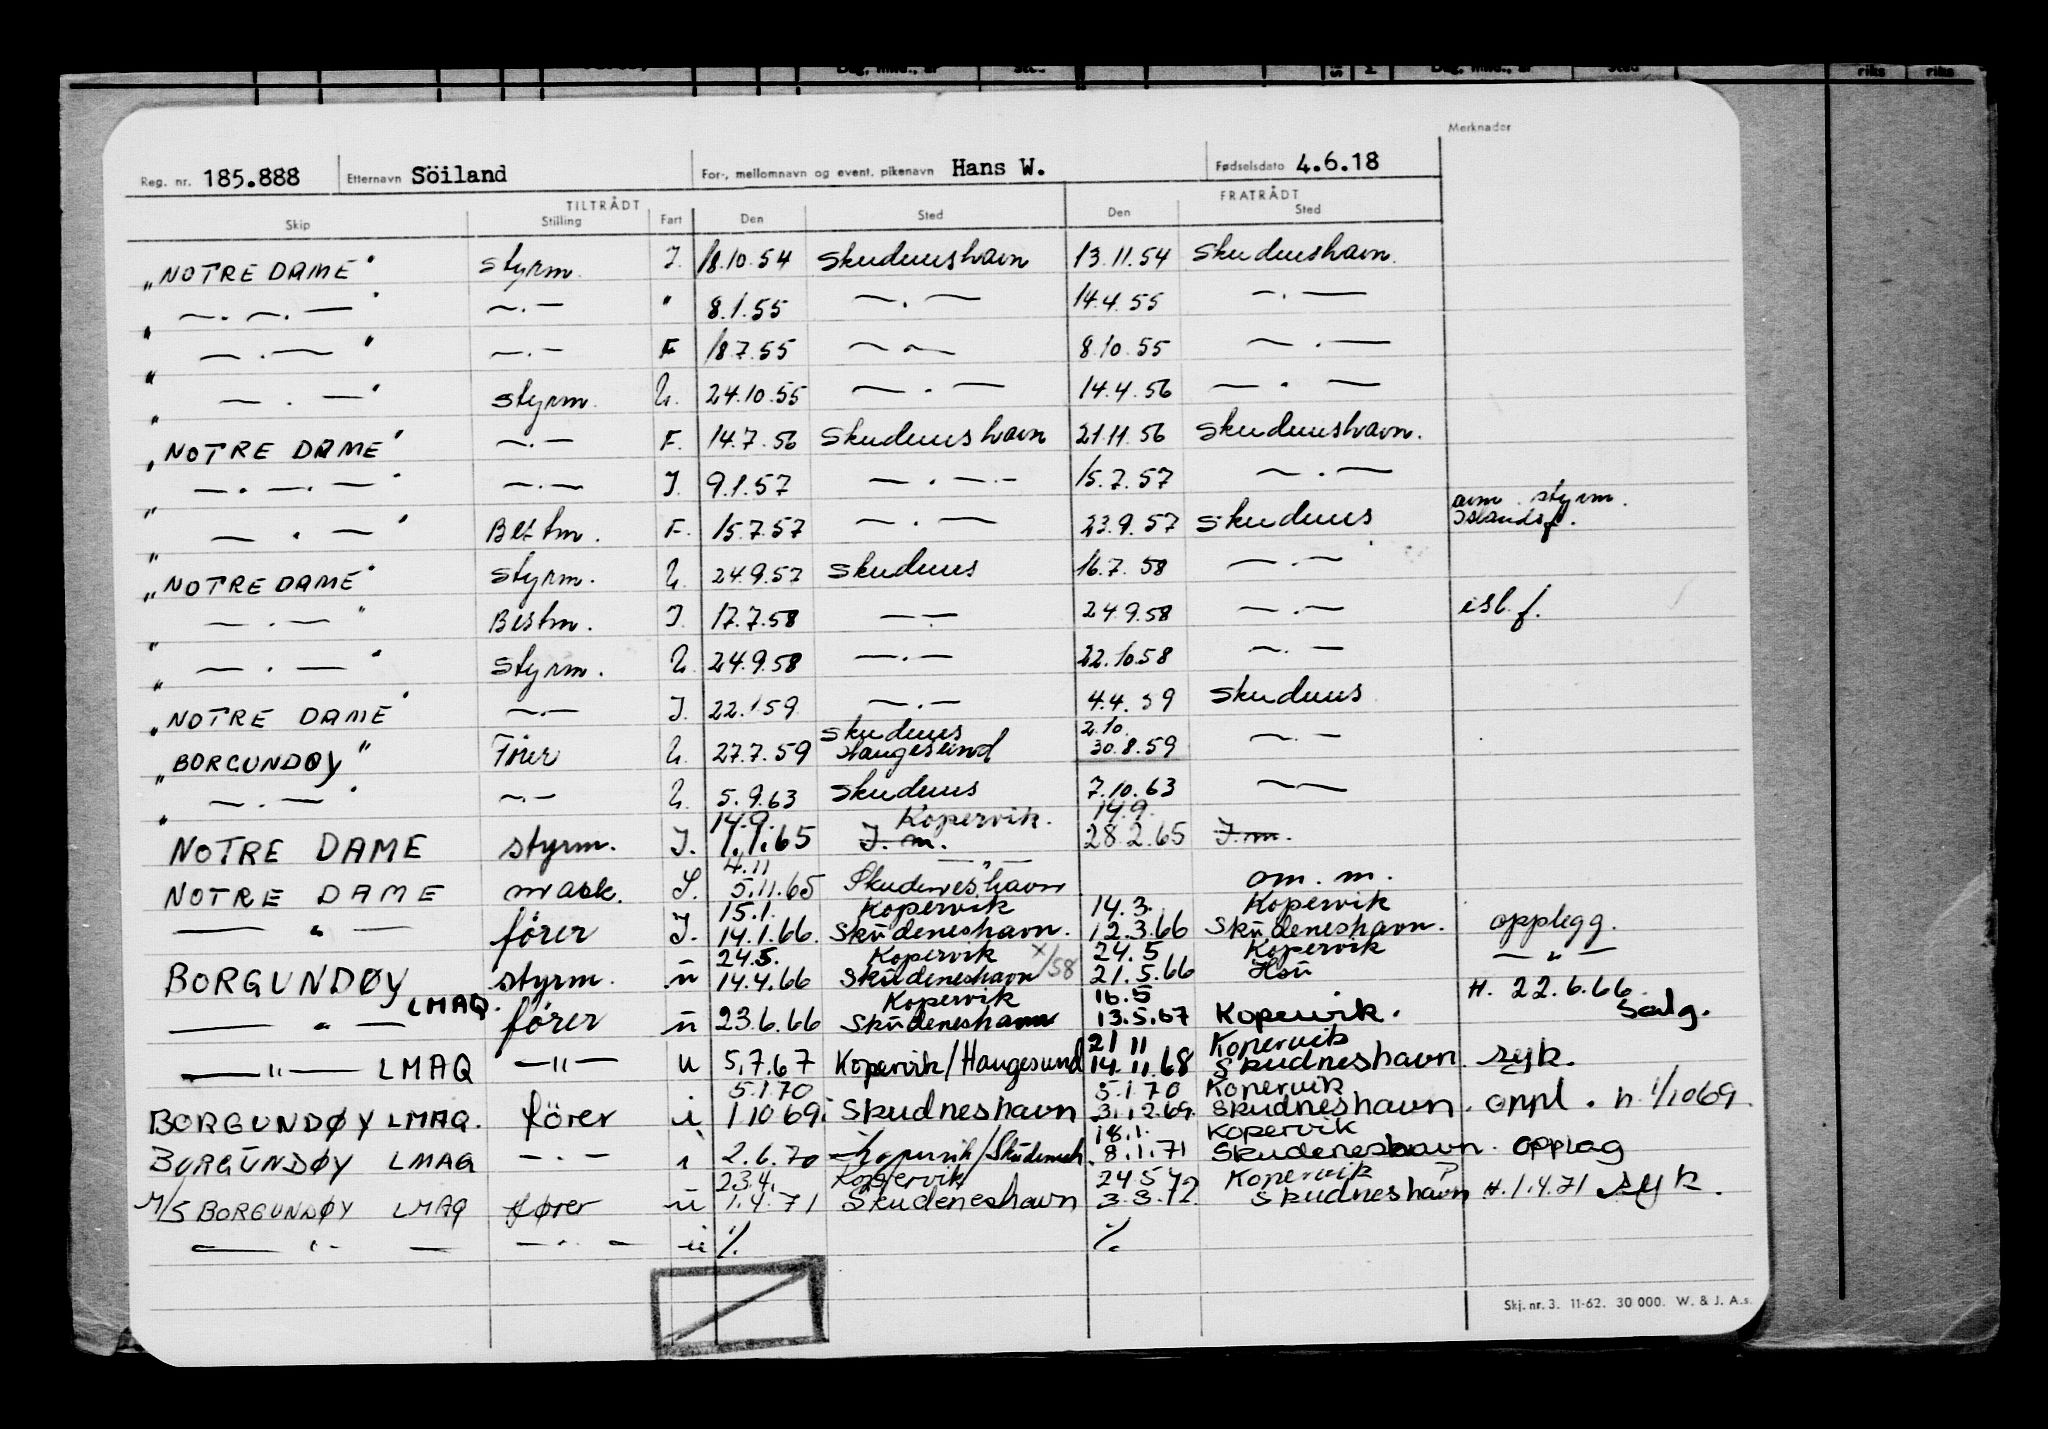 Merknader
Reg. nr. 185.888 Etternavn Söiland For-, mellomnavn og event. pikenavn Hans W. Fødselsdato 4.6.18
TILTRÅDT FRATRÅDT
Skip Stilling Fart Den Sted Den Sted
„NOTRE DAME" styrm. I. 18.10.54 Skudeneshavn 13.11.54 Skudeneshavn.
„ —.—.— " —.— " 8.1.55 —.— 14.4.55 —.—
„ —.— " —.— F 18.7.55 —.— 8.10.55 —.—
„ —.— " styrm. U. 24.10.55 —.— 14.4.56 —.—
„NOTRE DAME" —.— F. 14.7.56 Skudeneshavn 21.11.56 Skudeneshavn.
„ —.—.— " —.— I. 9.1.57 —.—.— 15.7.57 —.—
„ —.— " Bestm. F. 15.7.57 —.— 23.9.57 Skudenes styrm. Islandsf.
„NOTRE DAME" styrm. U. 24.9.57 Skudenes 16.7.58 —.—
„ —.— " Bestm. I. 17.7.58 —.— 24.9.58 —.— isl. f.
„ —.— " styrm. U. 24.9.58 —.— 22.10.58 —.—
„NOTRE DAME" —.— I. 22.1.59 —.— 4.4.59 Skudenes
Skudenes 2.10.
„BORGUNDØY" Förer U. 27.7.59 Haugesund 30.8.59 —.—
„ —.— " —.— U. 5.9.63 Skudenes 7.10.63 —.—
14.9. Kopervik. 14.9.
NOTRE DAME styrm. I. 1.1.65 I. m. 28.2.65 I. m.
4.11 — " —
NOTRE DAME mask. I. 5.11.65 Skudeneshavn om. m.
15.1. Kopervik 14.3. Kopervik
— " — förer I. 14.1.66. Skudeneshavn. 12.3.66 Skudeneshavn. opplegg.
24.5. Kopervik x/58 24.5 Kopervik — " —
BORGUNDØY styrm. u 14.4.66 Skudeneshavn 21.5.66 Hsu
Kopervik 16.5 H. 22.6.66.
— " — LMAQ. förer u 23.6.66 Skudeneshavn 13.5.67 Kopervik. Salg.
21 11 Kopervik
— " — LMAQ — " — u 5.7.67 Kopervik/Haugesund 14.11.68 Skudneshavn syk.
5.1.70 5.1.70 Kopervik
BORGUNDØY LMAQ. förer i 1 10 69. Skudneshavn 31.12.69. Skudneshavn. oppl. h. 1/10 69.
18.1. Kopervik
BORGUNDØY LMAQ —.— i 2.6.70 Kopervik/Skudenesh. 8.1.71 Skudeneshavn. opplag
23.4. Kopervik 24 5 72 Kopervik ?
M/S BORGUNDØY LMAQ fører u 1.4.71 Skudeneshavn 3.3.72. Skudneshavn H. 1.4.71 syk.
— " — —.— u ./. ./.
Skj. nr. 3. 11-62. 30 000. W. & J. A.s.